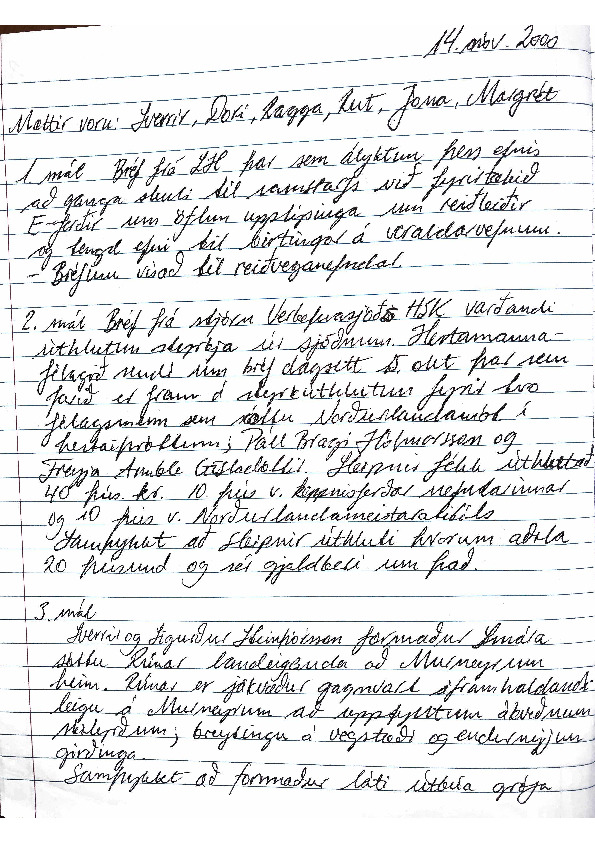 14. nóv. 2000
Mættir voru: Sverrir, Dóri, Ragga, Rut, Jóna, Margrét
1. mál Bréf frá LH þar sem ályktun þess efnis
að ganga skuli til samstarfs við fyrirtækið
E-ferðir um öflun upplýsinga um reiðleiðir
og tengd efni til birtingar á veraldarvefnum.
- Bréfinu vísað til reiðveganefndar.
2. mál Bréf frá stjórn Verkefnasjóðs HSK varðandi
úthlutun styrkja úr sjóðnum. Hestamanna-
félagið sendi inn bréf dagsett 5. okt þar sem
farið er fram á styrkúthlutun fyrir tvo
félagsmenn sem sóttu Norðurlandamót í
hestaíþróttum; Páll Bragi Hólmarsson og
Freyja Amble Gísladóttir. Sleipnir fékk úthlutað
40 þús. kr. 10 þús v. keppnisferðar nefndarinnar
og 10 þús v. Norðurlandameistaratitils
Samþykkt að Sleipnir úthluti hvorum aðila
20 þúsund og sér gjaldkeri um það.
3. mál
Sverrir og Sigurður Steinþórsson formaður Smára
sóttu Rúnar landeiganda að Murneyrum
heim. Rúnar er jákvæður gagnvart áframhaldandi
leigu á Murneyrum að uppfylltum ákveðnum
skilyrðum; breytingu á vegstæði og endurnýjun
girðinga.
Samþykkt að formaður láti útbúa grófa